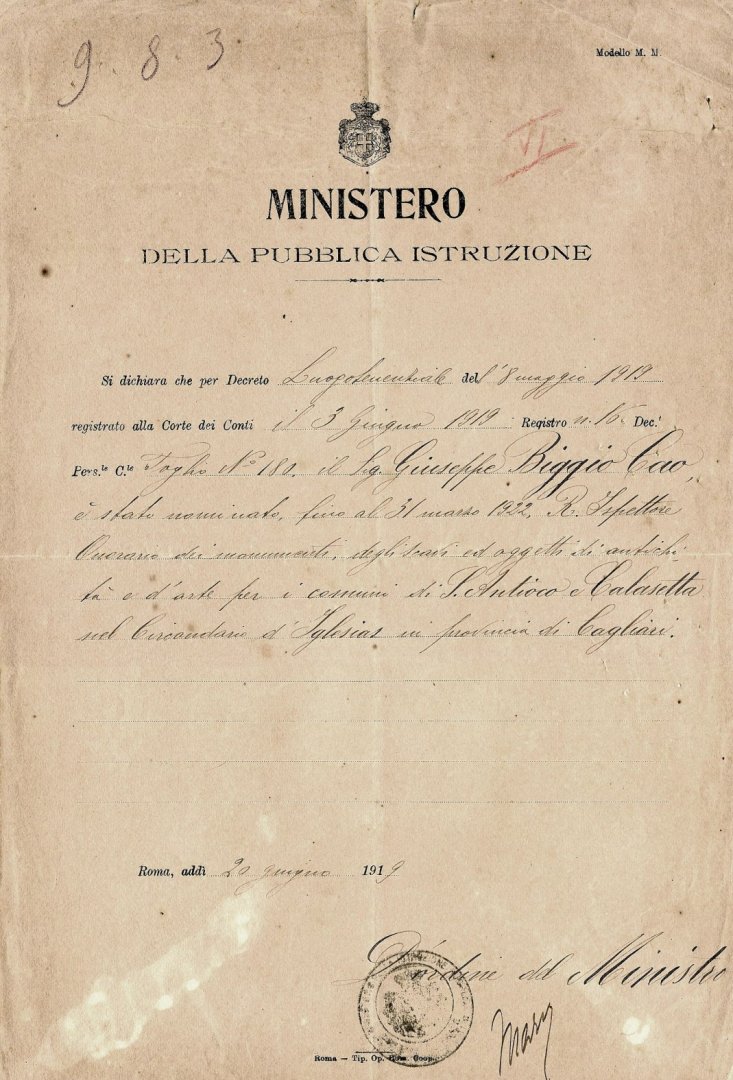 9.8.3
Modello M. M.
VI
MINISTERO
DELLA PUBBLICA ISTRUZIONE
Si dichiara che per Decreto Luogotenenziale dell'8 maggio 1919
registrato alla Corte dei Conti il 3 Giugno 1919 : Registro n. 16. Dec.ⁱ
Pers.le C.le Foglio No 180. il Sig. Giuseppe Biggio Cao,
è stato nominato, fino al 31 marzo 1922, R. Ispettore
Onorario dei monumenti, degli scavi ed oggetti di antichi-
tà e d'arte per i comuni di S. Antioco e Calasetta
nel Circondario d'Iglesias in provincia di Cagliari.
Roma, addì 20 giugno 1919
D'ordine del Ministro
Roma — Tip. Op. Rom. Coop.